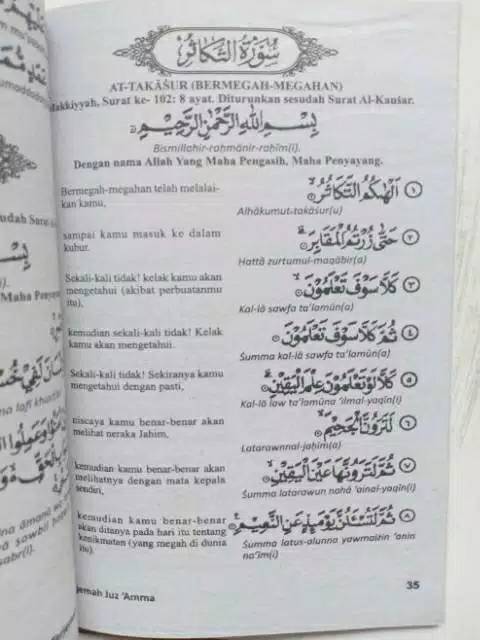 سُورَةُ التَّكَاثُرِ
AT-TAKĀŠUR (BERMEGAH-MEGAHAN)
Makkiyyah, Surat ke- 102: 8 ayat. Diturunkan sesudah Surat Al-Kaušar.
بِسْمِ اللّٰهِ الرَّحْمٰنِ الرَّحِيْمِ
Bismillahir-rahmānir-rahīm(i).
Dengan nama Allah Yang Maha Pengasih, Maha Penyayang.
Bermegah-megahan telah melalai-
kan kamu,
١ اَلْهٰىكُمُ التَّكَاثُرُ
Alhākumut-takāšur(u)
sampai kamu masuk ke dalam
kubur.
٢ حَتّٰى زُرْتُمُ الْمَقَابِرَ
Hattā zurtumul-maqābir(a)
Sekali-kali tidak! kelak kamu akan
mengetahui (akibat perbuatanmu
itu),
٣ كَلَّا سَوْفَ تَعْلَمُوْنَ
Kal-lā sawfa ta'lamūn(a)
kemudian sekali-kali tidak! Kelak
kamu akan mengetahui.
٤ ثُمَّ كَلَّا سَوْفَ تَعْلَمُوْنَ
Šumma kal-lā sawfa ta'lamūn(a)
Sekali-kali tidak! Sekiranya kamu
mengetahui dengan pasti,
٥ كَلَّا لَوْ تَعْلَمُوْنَ عِلْمَ الْيَقِيْنِ
Kal-lā law ta'lamūna 'ilmal-yaqīn(i)
niscaya kamu benar-benar akan
melihat neraka Jahim,
٦ لَتَرَوُنَّ الْجَحِيْمَ
Latarawnnal-jahīm(a)
kemudian kamu benar-benar akan
melihatnya dengan mata kepala
sendiri,
٧ ثُمَّ لَتَرَوُنَّهَا عَيْنَ الْيَقِيْنِ
Šumma latarawun nahā 'ainal-yaqīn(i)
kemudian kamu benar-benar
akan ditanya pada hari itu tentang
kenikmatan (yang megah di dunia
itu).
٨ ثُمَّ لَتُسْـَٔلُنَّ يَوْمَىِٕذٍ عَنِ النَّعِيْمِ
Šumma latus-alunna yawmaižin 'anin
na'īm(i)
Juz 'Amma
35